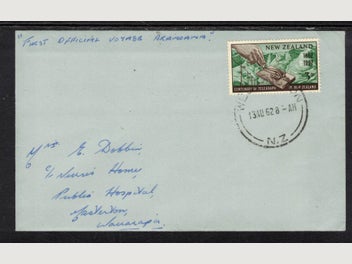 "FIRST OFFICIAL VOYAGE ARAMOANA"
NEW ZEALAND
1862
1962
3d
CENTENARY OF TELEGRAPH IN NEW ZEALAND
13AU 62 8 - AM
N.Z.
Mrs E. Dobbin,
c/ Nurses Home,
Public Hospital,
Masterton,
Wairarapa